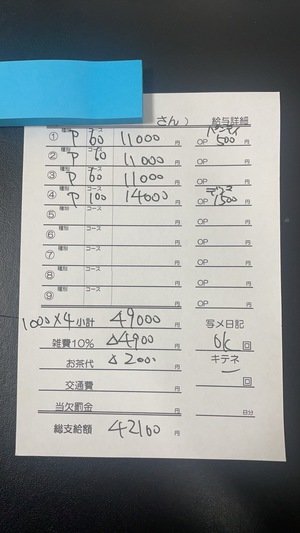 さん） 給与詳細
① 種別 P コース 60 11000円 パンティ OP 500円
② 種別 P コース 60 11000円 OP 円
③ 種別 P コース 60 11000円 OP 円
④ 種別 P コース 100 14000円 OP 1500円
⑤ 種別 コース 円 OP 円
⑥ 種別 コース 円 OP 円
⑦ 種別 コース 円 OP 円
⑧ 種別 コース 円 OP 円
⑨ 種別 コース 円 OP 円
1000×4 小計 49000円 写メ日記
雑費10% △4900円 ok 回
お茶代 △2000円 キテネ
交通費 円 ー 回
当欠罰金 円 日分
総支給額 42100円